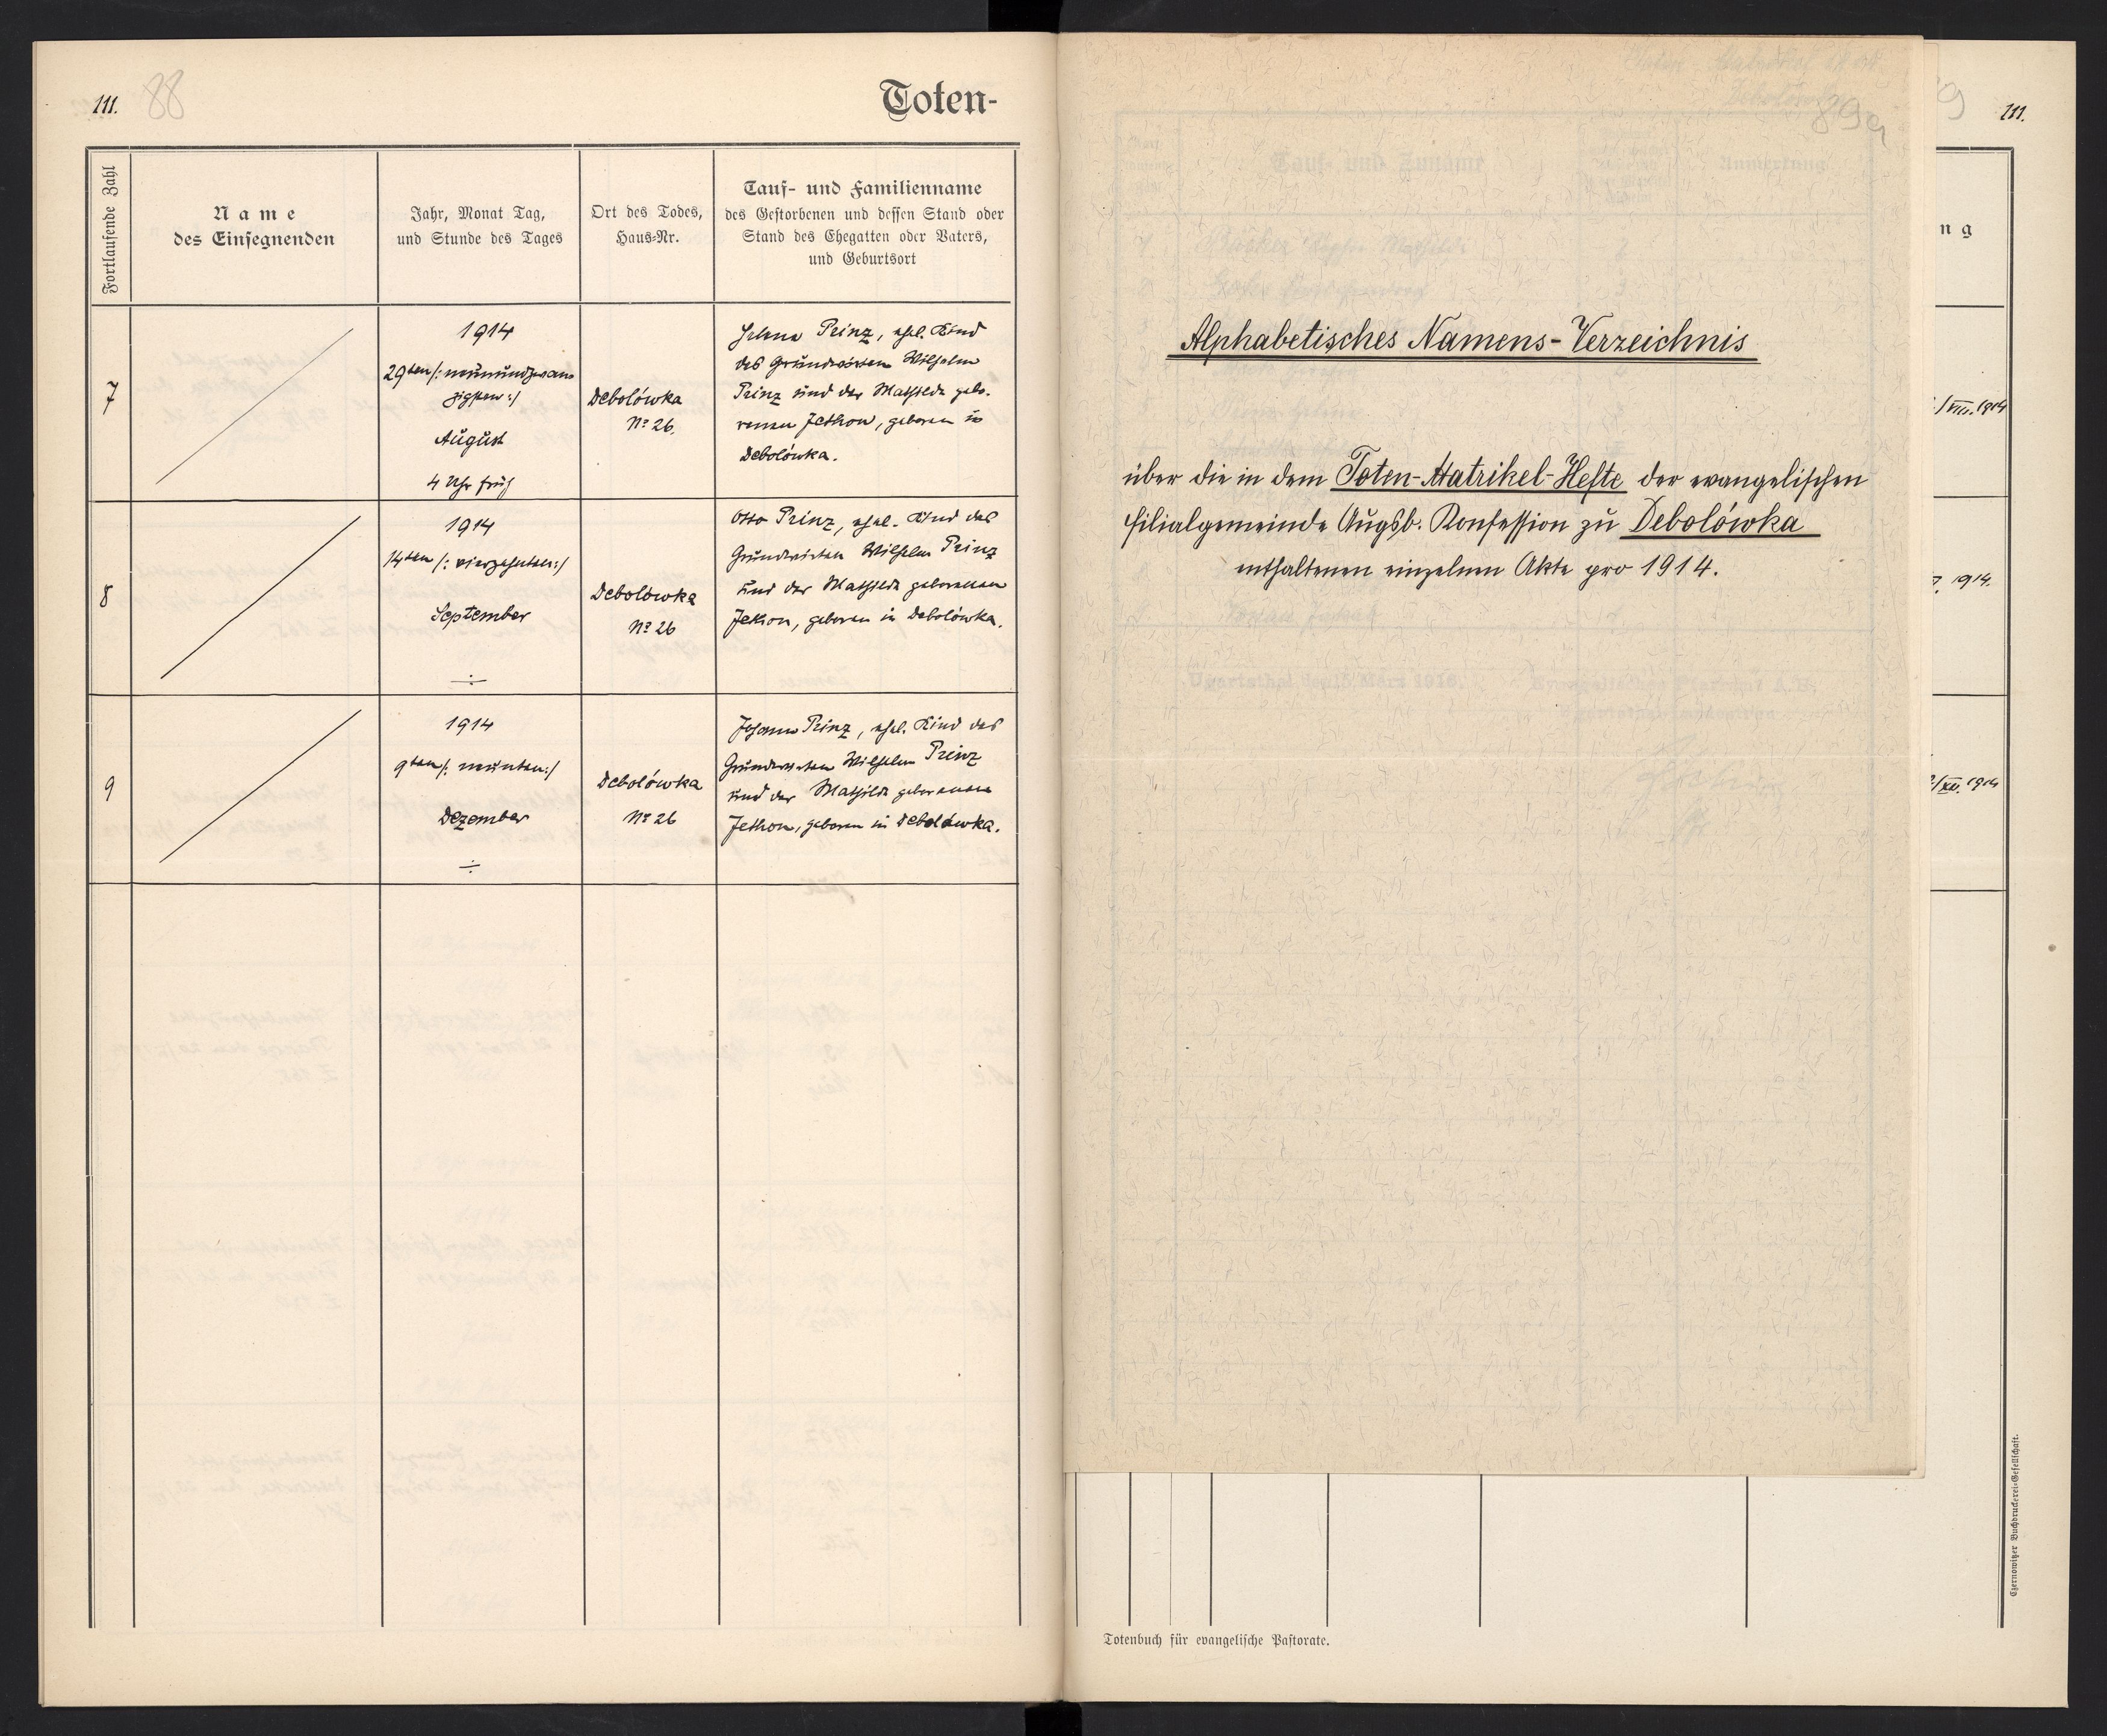 111. 88
Toten-
Fortlaufende Zahl
Name
des Einsegnenden
Jahr, Monat Tag,
und Stunde des Tages
Ort des Todes,
Haus-Nr.
Tauf- und Familienname
des Gestorbenen und dessen Stand oder
Stand des Ehegatten oder Vaters,
und Geburtsort
7
1914
29ten/: neunundzwan
zigsten :/
August
4 Uhr früh
Debolówka
No 26.
Helena Prinz, ehel. Kind
des Grundwirten Wilhelm
Prinz und der Mathilde gebo-
renen Jethon, geboren in
Debolówka.
8
1914
14ten /: vierzehnten :/
September
÷
Debolówka
No 26
Otto Prinz, ehel. Kind des
Grundwirten Wilhelm Prinz
und der Mathilde geborenen
Jethon, geboren in Debolówka.
9
1914
9ten /: neunten :/
Dezember
÷
Debolówka
No 26
Johann Prinz, ehel. Kind des
Grundwirten Wilhelm Prinz
und der Mathilde geborenen
Jethon, geboren in Debolówka.
89a
Alphabetisches Namens-Verzeichnis
über die in dem Toten-Matrikel-Hefte der evangelischen
Filialgemeinde Augsb. Konfession zu Debolówka
enthaltenen einzelnen Akte pro 1914.
9 111.
ng
/VIII. 1914
1914.
/XII. 1914
Totenbuch für evangelische Pastorate.
Czernowitzer Buchdruckerei-Gesellschaft.